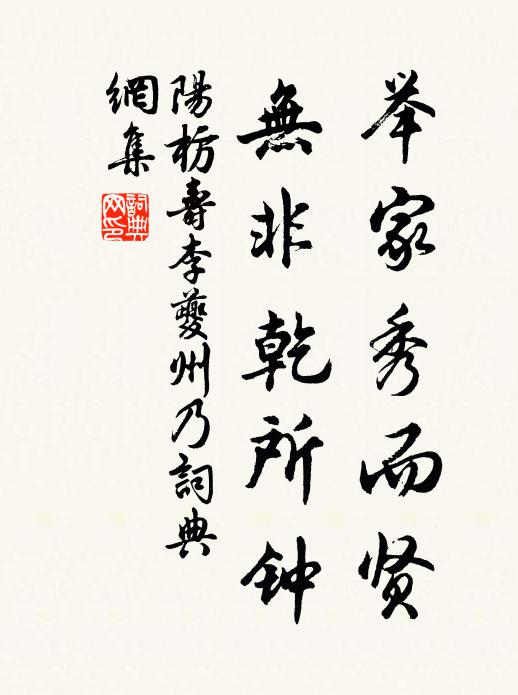 举家秀而贤
無非乾所钟
陽枋壽李夔州乃詞典
網集
詞典
网印